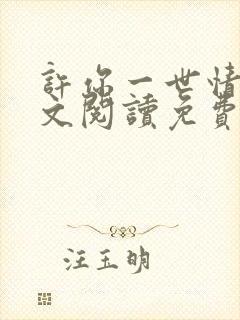 許你一世情
文閱讀免費
汪玉明